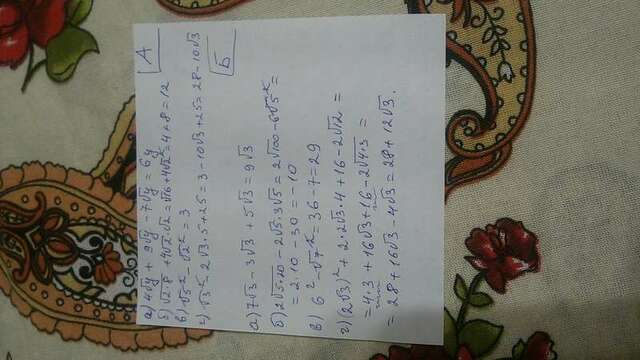 а) 4√y + 9√y - 7√y = 6y
А
б) √2·8 + 4√2·√2 = √16 + 4√2² = 4 + 8 = 12
в) √5² - √2² = 3
г) √3² - 2√3·5 + 25 = 3 - 10√3 + 25 = 28 - 10√3
Б
а) 7√3 - 3√3 + 5√3 = 9√3
б) 2√5·20 - 2√5·3√5 = 2√100 - 6√5² =
= 2·10 - 30 = -10
в) 6² - √7² = 36 - 7 = 29
г) (2√3)² + 2·2√3·4 + 16 - 2√12 =
= 4·3 + 16√3 + 16 - 2√4·3 =
= 28 + 16√3 - 4√3 = 28 + 12√3.